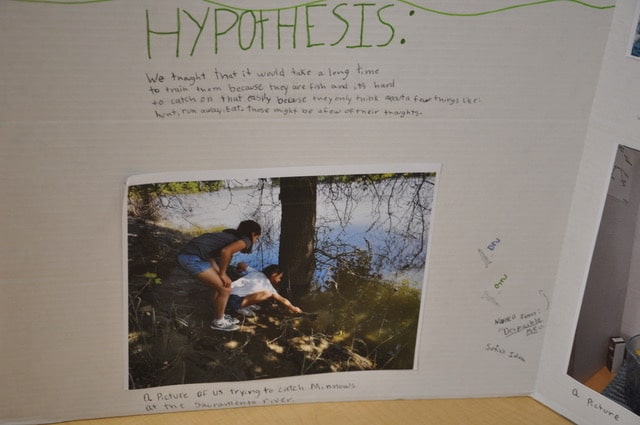 HYPOTHESIS:
We thaght that it would take a long time
to train them because they are fish and its hard
to catch on that easily becuse they only think abouta few things like:
hunt, run away, Eat. those might be a few of their thoughts.
A Picture of us trying to catch Minnows
at the Sacramento river.
a Picture